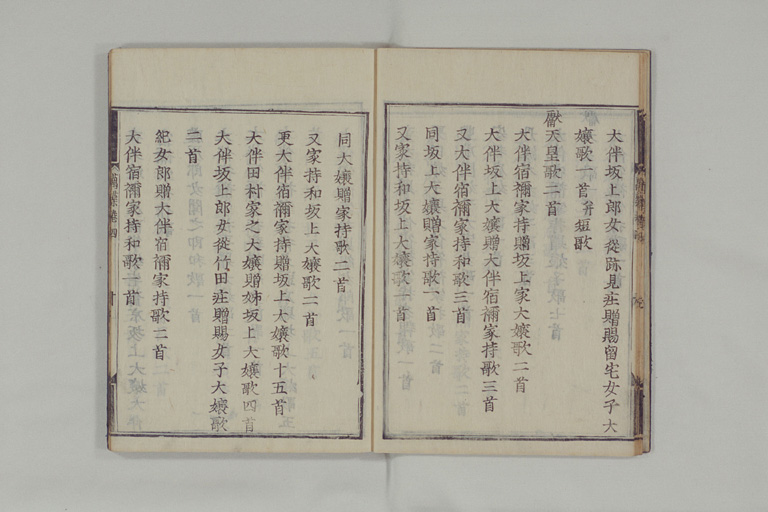 大伴坂上郎女從跡見庄贈賜留宅女子大
孃歌一首并短歌
獻天皇歌二首
大伴宿禰家持贈坂上家大孃歌二首
大伴坂上大孃贈大伴宿禰家持歌三首
又大伴宿禰家持和歌三首
同坂上大孃贈家持歌一首
又家持和坂上大孃歌一首
同大孃贈家持歌二首
又家持和坂上大孃歌二首
更大伴宿禰家持贈坂上大孃歌十五首
大伴田村家之大孃贈姊坂上大孃歌四首
大伴坂上郎女從竹田庄贈賜女子大孃歌
二首
紀女郎贈大伴宿禰家持歌二首
大伴宿禰家持和歌一首